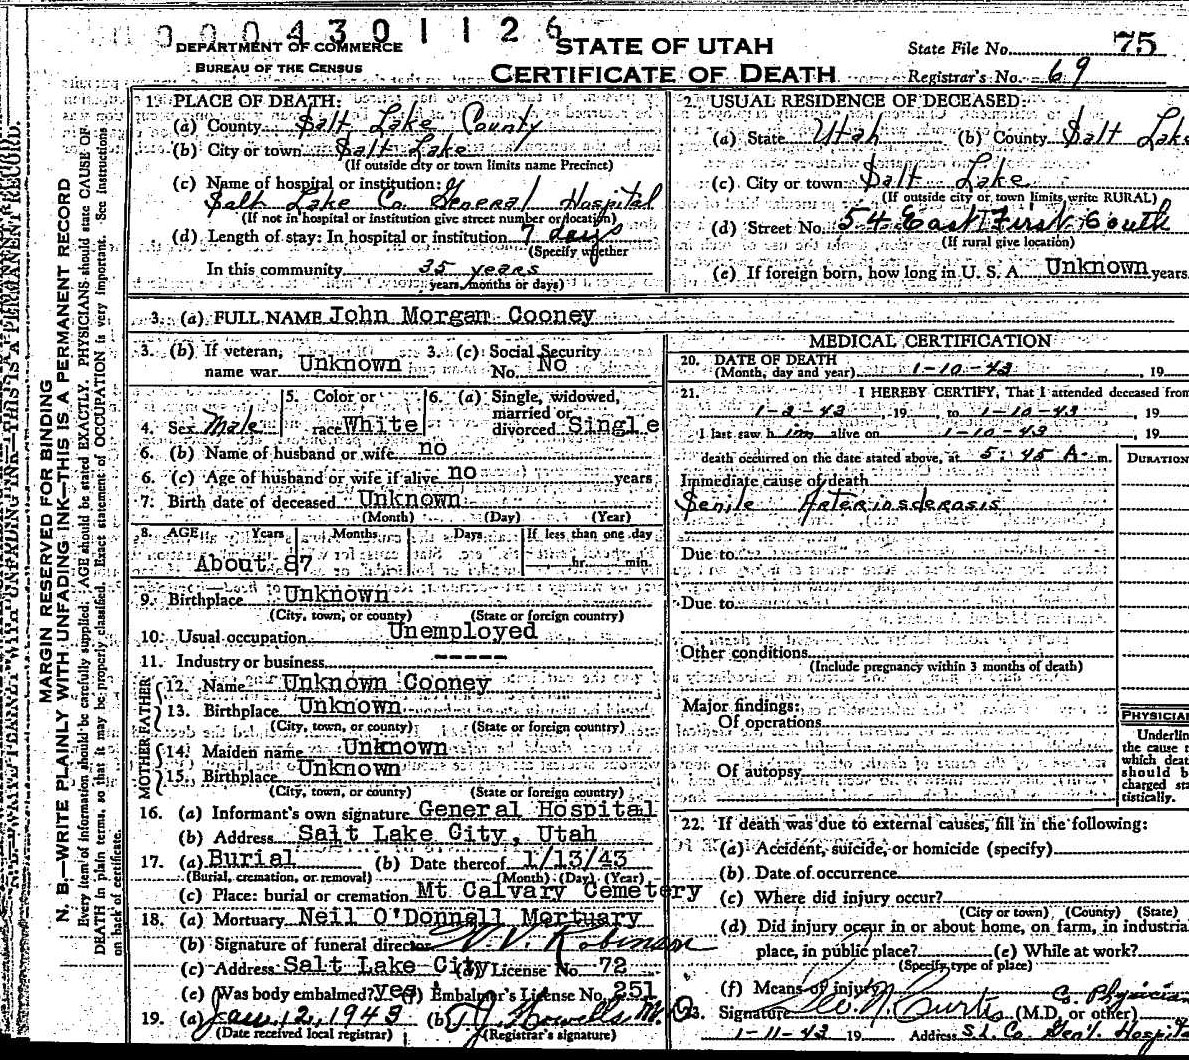 0 0 0 4 3 0 1 1 2 6
DEPARTMENT OF COMMERCE
BUREAU OF THE CENSUS
STATE OF UTAH
CERTIFICATE OF DEATH
State File No. 75
Registrar's No. 69
MARGIN RESERVED FOR BINDING
N. B.—WRITE PLAINLY WITH UNFADING INK—THIS IS A PERMANENT RECORD
Every item of information should be carefully supplied. AGE should be stated EXACTLY. PHYSICIANS should state CAUSE OF
DEATH in plain terms, so that it may be properly classified. Exact statement of OCCUPATION is very important. See instructions
on back of certificate.
1. PLACE OF DEATH:
(a) County Salt Lake County
(b) City or town Salt Lake
(If outside city or town limits name Precinct)
(c) Name of hospital or institution:
Salt Lake Co. General Hospital
(If not in hospital or institution give street number or location)
(d) Length of stay: In hospital or institution 7 days
(Specify whether
In this community 35 years
years, months or days)
2. USUAL RESIDENCE OF DECEASED:
(a) State Utah (b) County Salt Lake
(c) City or town Salt Lake
(If outside city or town limits write RURAL)
(d) Street No. 54 East First South
(If rural give location)
(e) If foreign born, how long in U. S. A. Unknown years.
3. (a) FULL NAME John Morgan Cooney
3. (b) If veteran, name war Unknown 3. (c) Social Security No. No
4. Sex Male 5. Color or race White 6. (a) Single, widowed, married or divorced Single
6. (b) Name of husband or wife no
6. (c) Age of husband or wife if alive no years
7. Birth date of deceased Unknown
(Month) (Day) (Year)
8. AGE Years Months Days If less than one day
About 87 hr. min.
9. Birthplace Unknown
(City, town, or county) (State or foreign country)
10. Usual occupation Unemployed
11. Industry or business -----
FATHER
12. Name Unknown Cooney
13. Birthplace Unknown
(City, town, or county) (State or foreign country)
MOTHER
14. Maiden name Unknown
15. Birthplace Unknown
(City, town, or county) (State or foreign country)
16. (a) Informant's own signature General Hospital
(b) Address Salt Lake City, Utah
17. (a) Burial (b) Date thereof 1/13/43
(Burial, cremation, or removal) (Month) (Day) (Year)
(c) Place: burial or cremation Mt Calvary Cemetery
18. (a) Mortuary Neil O'Donnell Mortuary
(b) Signature of funeral director V. V. Robinson
(c) Address Salt Lake City (d) License No. 72
(e) Was body embalmed? yes (f) Embalmer's License No. 251
19. (a) Jan. 12, 1943 (b) Howells M.D.
(Date received local registrar) (Registrar's signature)
MEDICAL CERTIFICATION
20. DATE OF DEATH
(Month, day and year) 1-10-43, 19
21. I HEREBY CERTIFY, That I attended deceased from
1-2-43, 19 to 1-10-43, 19
I last saw him alive on 1-10-43, 19
death occurred on the date stated above, at 5:45 A. m.
DURATION
Immediate cause of death
Senile Arteriosclerosis
Due to
Due to
Other conditions
(Include pregnancy within 3 months of death)
Major findings:
Of operations
Of autopsy
PHYSICIAN
Underlin
the cause
which deat
should b
charged sta
tistically.
22. If death was due to external causes, fill in the following:
(a) Accident, suicide, or homicide (specify)
(b) Date of occurrence
(c) Where did injury occur?
(City or town) (County) (State)
(d) Did injury occur in or about home, on farm, in industria
place, in public place? (e) While at work?
(Specify type of place)
(f) Means of injury
Co. Physician
23. Signature Geo. N. Curtis (M.D. or other)
1-11-43 19 Address S.L. Co. Gen'l. Hospita